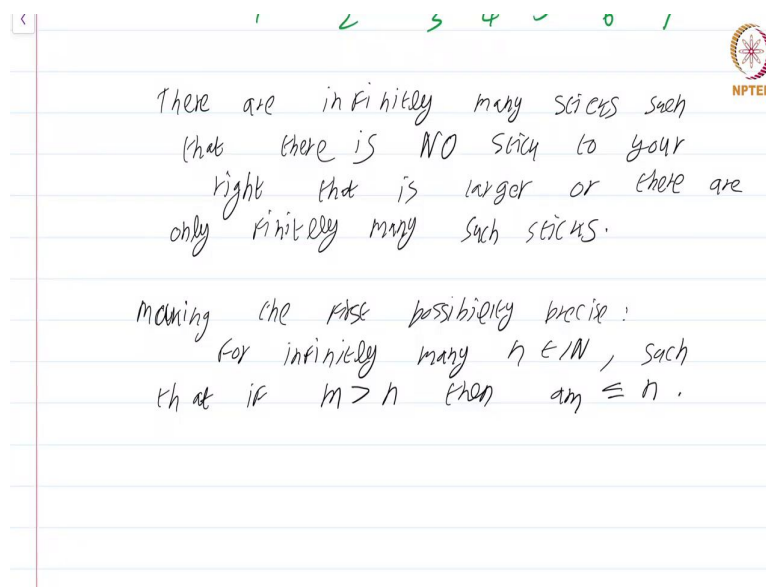 1 2 3 4 5 6 7
NPTEL
There are infinitely many sticks such
that there is NO stick to your
right that is larger or there are
only finitely many such sticks.
Making the first possibility precise :
For infinitely many n ∈ ℕ, such
that if m > n then am ≤ n.